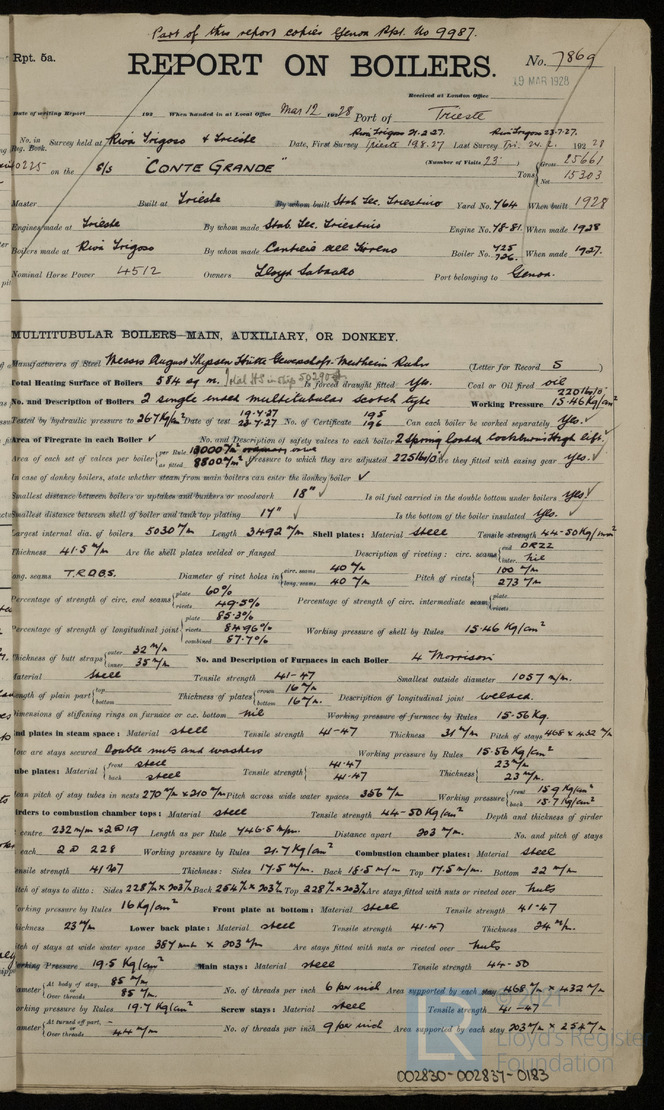 Part of this report copies Genoa Rpt. No 9987.
Rpt. 5a.
REPORT ON BOILERS.
No. 7869
19 MAR 1928
Received at London Office
Date of writing Report 192 When handed in at Local Office Mar 12 1928 Port of Trieste
No. in Reg. Book. Survey held at Riva Trigoso & Trieste Date, First Survey Riva Trigoso 21.2.27. Trieste 19.8.27 Last Survey Riva Trigoso 23.7.27. Tri. 24.2. 1928
on the S/S "CONTE GRANDE" (Number of Visits 23) Tons Gross 25661 Net 15303
Master Built at Trieste By whom built Stab. Tec. Triestino Yard No. 764 When built 1928
Engines made at Trieste By whom made Stab. Tec. Triestino Engine No. 78-81 When made 1928
Boilers made at Riva Trigoso By whom made Cantieri del Tirreno Boiler No. 725 726. When made 1927.
Nominal Horse Power 4512 Owners Lloyd Sabaudo Port belonging to Genoa.
MULTITUBULAR BOILERS—MAIN, AUXILIARY, OR DONKEY.
Manufacturers of Steel Messrs August Thyssen Hütte Gewerkschaft (Letter for Record S)
Total Heating Surface of Boilers 584 sq m. Is forced draught fitted Yes. Coal or Oil fired oil
No. and Description of Boilers 2 single ended multitubular scotch type Working Pressure 220 lb/□" 15.46 Kg/cm²
Tested by hydraulic pressure to 26.7 Kg/cm² Date of test 19.4.27 No. of Certificate 195 196 Can each boiler be worked separately Yes.
Area of Firegrate in each Boiler ✓ No. and Description of safety valves to each boiler 2 Spring loaded Cockburns High lift.
Area of each set of valves per boiler per Rule 13000 m/m² as fitted 8800 m/m² Pressure to which they are adjusted 225 lb/□" Are they fitted with easing gear Yes.
In case of donkey boilers, state whether steam from main boilers can enter the donkey boiler ✓
Smallest distance between boilers or uptakes and bunkers or woodwork 18" Is oil fuel carried in the double bottom under boilers Yes
Smallest distance between shell of boiler and tank top plating 17" Is the bottom of the boiler insulated Yes.
Largest internal dia. of boilers 5030 m/m Length 3492 m/m Shell plates: Material Steel Tensile strength 44-50 Kg/mm²
Thickness 41.5 m/m Are the shell plates welded or flanged Description of riveting: circ. seams end DR22 inter. Nil
long. seams T.R.D.B.S. Diameter of rivet holes in circ. seams 40 m/m long. seams 40 m/m Pitch of rivets 100 m/m 273 m/m
Percentage of strength of circ. end seams plate 60% rivets 49.5% Percentage of strength of circ. intermediate seam plate rivets
Percentage of strength of longitudinal joint plate 85.3% rivets 84.96% combined 87.7% Working pressure of shell by Rules 15.46 Kg/cm²
Thickness of butt straps outer 32 m/m inner 35 m/m No. and Description of Furnaces in each Boiler 4 Morrison
Material Steel Tensile strength 41-47 Smallest outside diameter 1057 m/m.
Length of plain part top bottom Thickness of plates crown 16 m/m bottom 16 m/m. Description of longitudinal joint welded.
Dimensions of stiffening rings on furnace or c.c. bottom nil Working pressure of furnace by Rules 15.56 Kg.
End plates in steam space: Material steel Tensile strength 41-47 Thickness 31 m/m Pitch of stays 468 x 432 m/m
How are stays secured Double nuts and washers Working pressure by Rules 15.56 Kg/cm²
Tube plates: Material front steel back steel Tensile strength 41-47 41-47 Thickness 23 m/m 23 m/m.
Mean pitch of stay tubes in nests 270 m/m x 210 m/m Pitch across wide water spaces 356 m/m Working pressure front 15.9 Kg/cm² back 15.7 Kg/cm²
Girders to combustion chamber tops: Material steel Tensile strength 44-50 Kg/mm² Depth and thickness of girder
at centre 232 m/m x 2 @ 19 Length as per Rule 746.5 m/m. Distance apart 203 m/m. No. and pitch of stays
in each 2 @ 228 Working pressure by Rules 21.7 Kg/cm² Combustion chamber plates: Material steel
Tensile strength 41-47 Thickness: Sides 17.5 m/m. Back 18.5 m/m Top 17.5 m/m. Bottom 22 m/m
Pitch of stays to ditto: Sides 228 m/m x 203 m/m Back 254 m/m x 203 m/m Top 228 m/m x 203 m/m Are stays fitted with nuts or riveted over Nuts
Working pressure by Rules 16 Kg/cm² Front plate at bottom: Material steel Tensile strength 41-47
Thickness 23 m/m Lower back plate: Material steel Tensile strength 41-47 Thickness 24 m/m.
Pitch of stays at wide water space 387 m/m x 203 m/m Are stays fitted with nuts or riveted over nuts
Working Pressure 19.5 Kg/cm² Main stays: Material steel Tensile strength 44-50
Diameter At body of stay, 85 m/m or Over threads 85 m/m. No. of threads per inch 6 per inch Area supported by each stay 468 m/m x 432 m/m
Working pressure by Rules 19.7 Kg/cm² Screw stays: Material steel Tensile strength 41-47
Diameter At turned off part, or Over threads 44 m/m No. of threads per inch 9 per inch Area supported by each stay 203 m/m x 254 m/m
© 2021
LR
Lloyd's Register
Foundation
002830-002837-0183